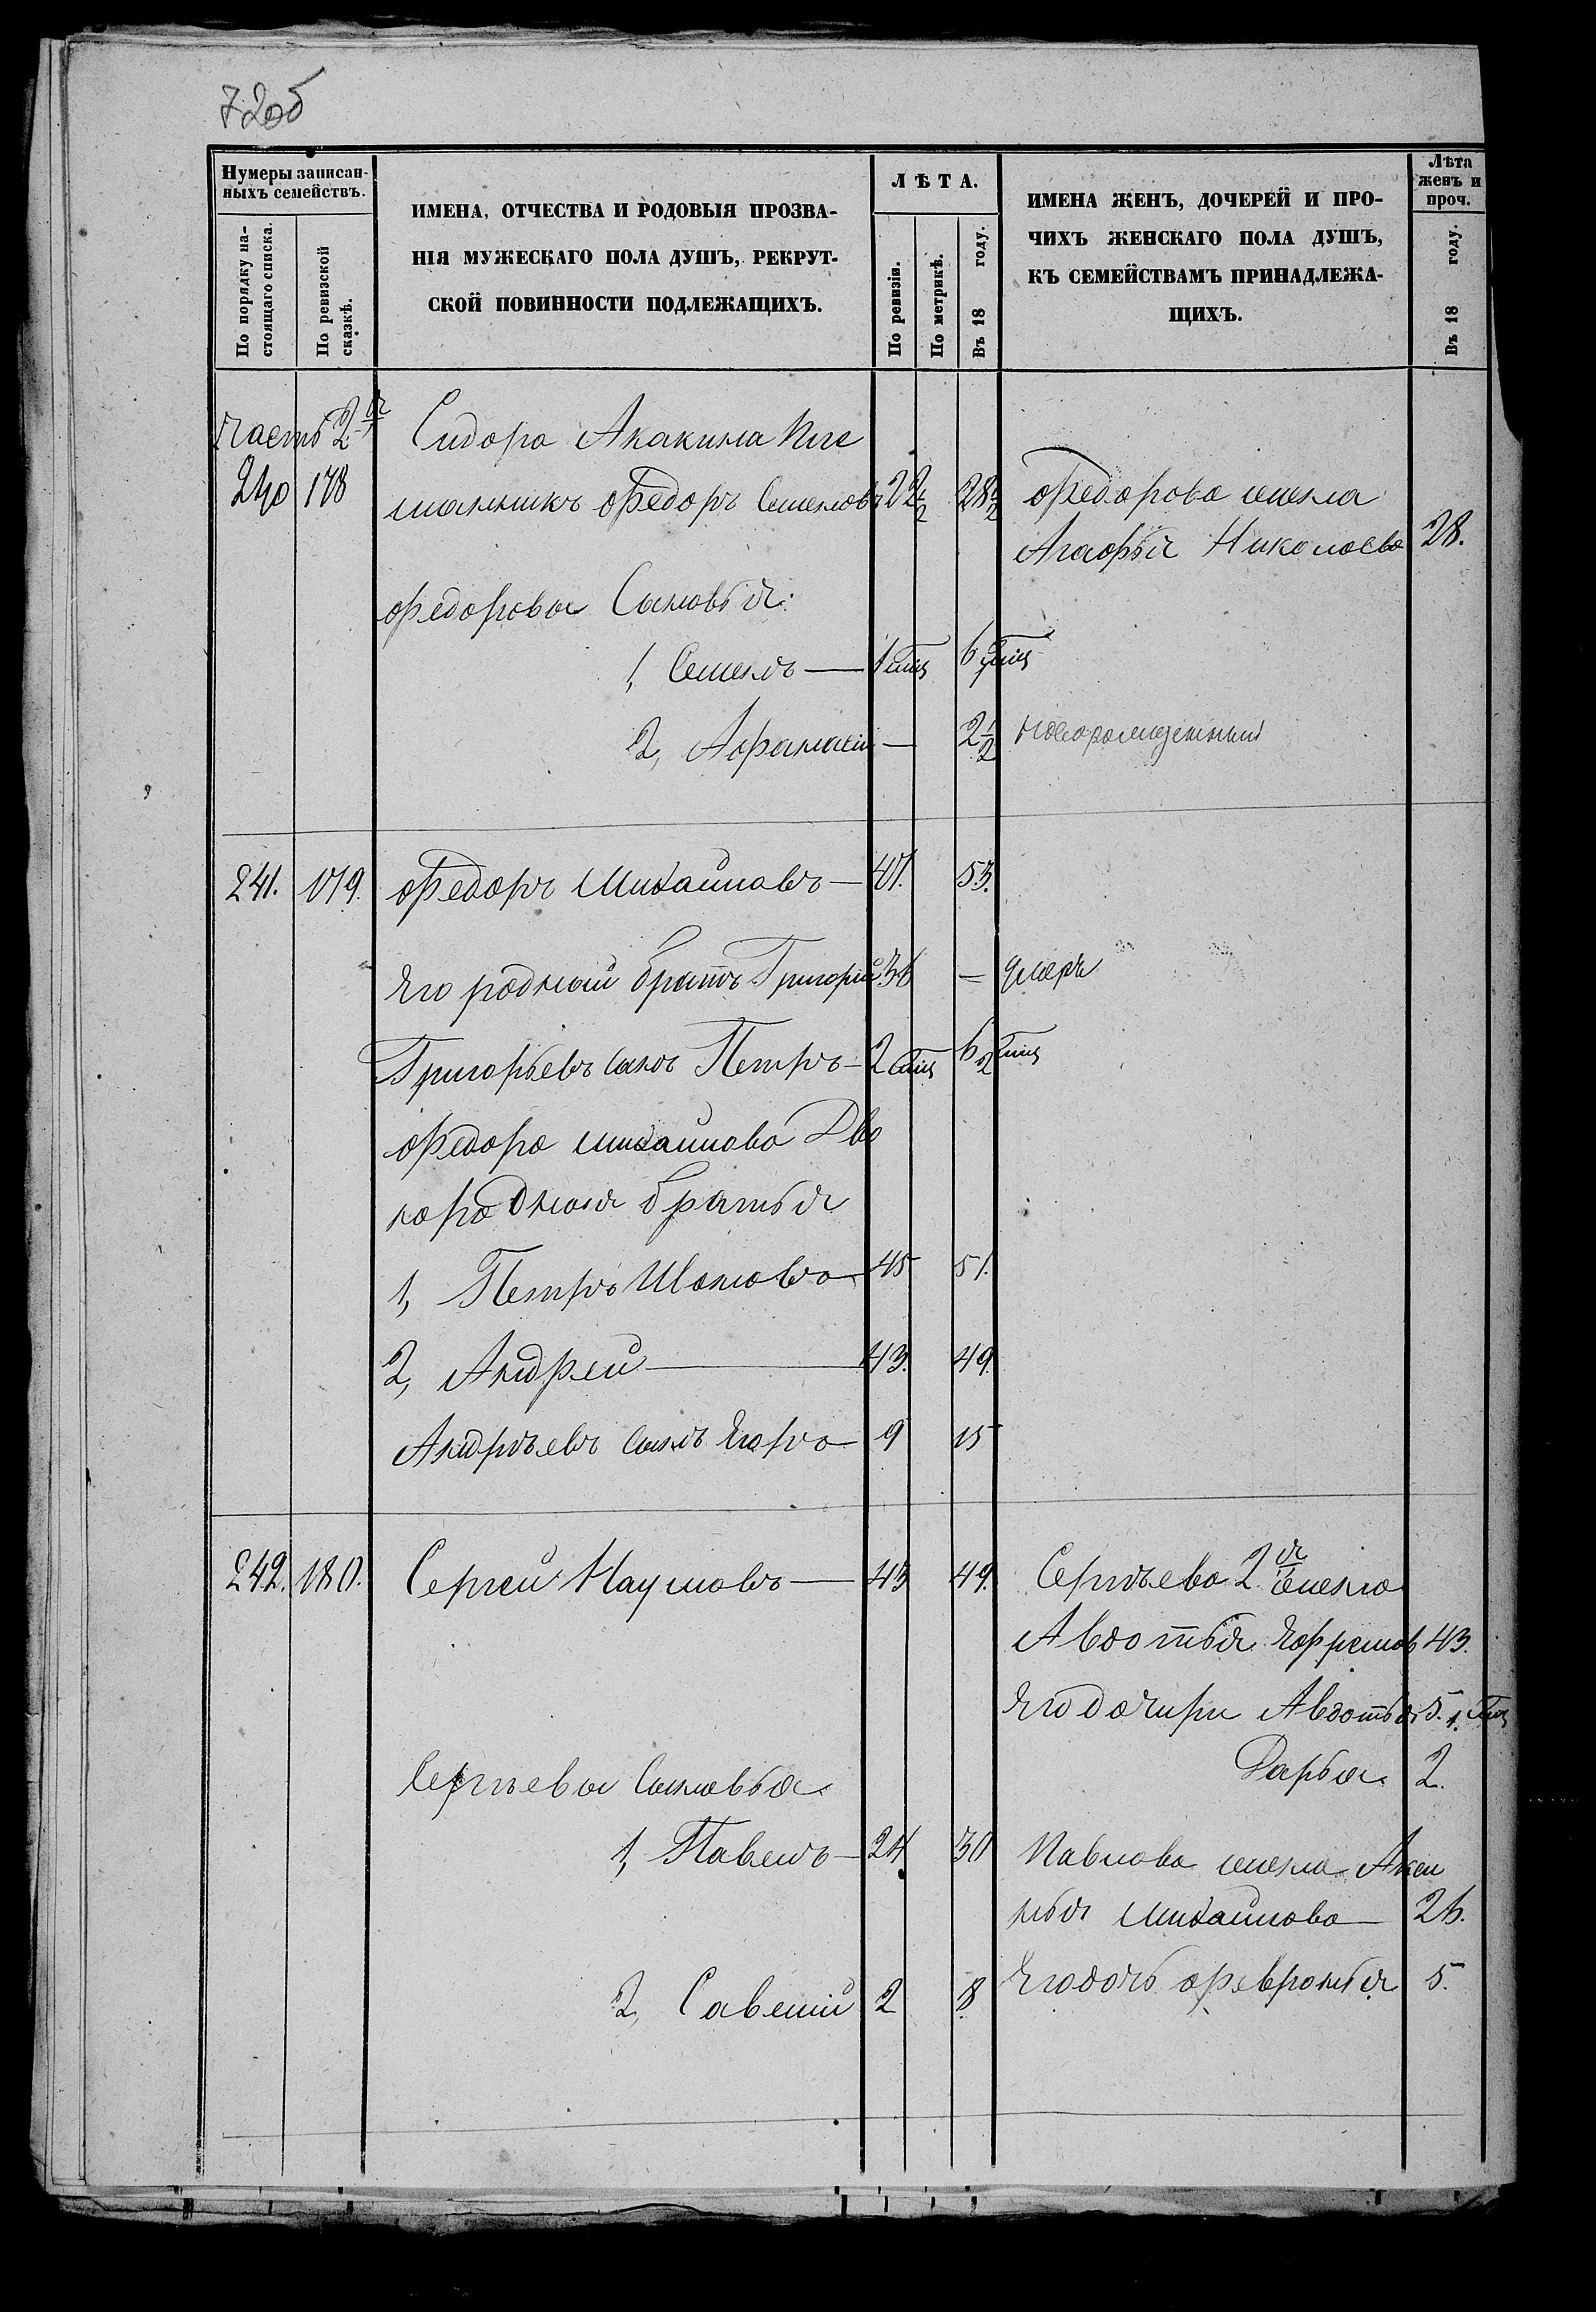 72об
Нумеры записан-
ныхъ семействъ.
По порядку на-
стоящаго списка.
По ревизской
сказкѣ.
ИМЕНА, ОТЧЕСТВА И РОДОВЫЯ ПРОЗВА-
НІЯ МУЖЕСКАГО ПОЛА ДУШЪ, РЕКРУТ-
СКОЙ ПОВИННОСТИ ПОДЛЕЖАЩИХЪ.
ЛѢТА.
По ревизіи.
По метрикѣ.
Въ 18 году.
ИМЕНА ЖЕНЪ, ДОЧЕРЕЙ И ПРО-
ЧИХЪ ЖЕНСКАГО ПОЛА ДУШЪ,
КЪ СЕМЕЙСТВАМЪ ПРИНАДЛЕЖА-
ЩИХЪ.
Лѣта
женъ и
проч.
Въ 18 году.
Часть 2я Сидора Акакина Пле
240 178 мянникъ Федоръ Семеновъ 22½ 28½ Федорова жена
Агафья Николаева 28.
Федоровы Сыновья:
1, Семенъ — 1 мц 6
2, Афанасій — 2½ новорожденный
241. 179. Федоръ Михайловъ — 47. 53.
Его родный братъ Григорій 36 — умеръ
Григорьевъ сынъ Петръ — 2 6
Федора Михайлова Дво
юродныя братья
1, Петръ Ивановъ — 45 51.
2, Андрей — 43. 49.
Андреевъ сынъ Егоръ — 9 15
242. 180. Сергей Наумовъ — 43 49. Сергѣева 2я жена
Авдотья Ефремов 43.
Его дочери Авдотья 5. 1.
Дарья 2.
Сергѣевы Сыновья
1, Павелъ — 24 30 Павлова жена Акси
нья Михайлова — 26.
2, Савелій 2 8 Его дочь Февронья 5.